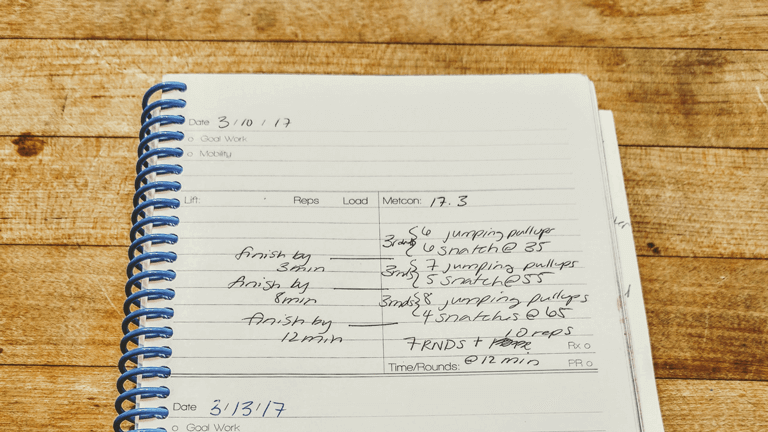 Date 3/10/17
o Goal Work
o Mobility
Lift: Reps Load Metcon: 17.3
3rnds { 6 jumping pullups
6 snatch @ 35
finish by
3min
3rnds { 7 jumping pullups
5 snatch @ 55
finish by
8min
3rnds { 8 jumping pullups
4 snatches @ 65
finish by
12min
10 reps
7 RNDS + Rx o
Time/Rounds: @ 12 min PR o
Date 3/13/17
o Goal Work